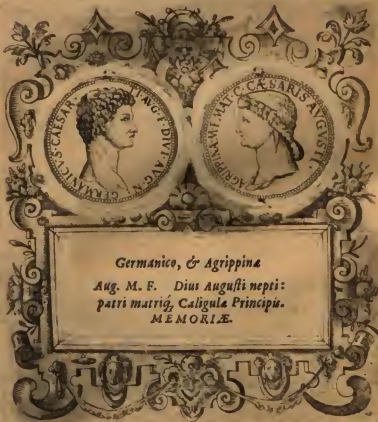 GERMANICVS CAESAR TI AVG F DIVI AVG N
AGRIPPINA M F MAT C CÆSARIS AVGVSTI
Germanico, & Agrippinæ
Aug. M. F. Diui Augusti nepti:
patri matriq́; Caligulæ Principis.
MEMORIÆ.